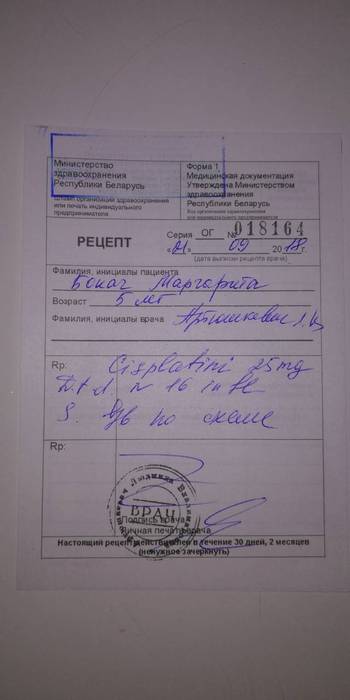 Министерство
здравоохранения
Республики Беларусь
Штамп организации здравоохранения
или печать индивидуального
предпринимателя
Форма 1
Медицинская документация
Утверждена Министерством
здравоохранения
Республики Беларусь
Для организаций здравоохранения
или индивидуального предпринимателя
РЕЦЕПТ
Серия ОГ № 018164
«21» 09 2018г.
(дата выписки рецепта врача)
Фамилия, инициалы пациента
Маргарита
Возраст 5 лет
Фамилия, инициалы врача
Rp: Cisplatini 25mg
D.t.d. N 16 in fl
S. В/в по схеме
Rp:
Людмила
ВРАЧ
Подпись врача
Личная печать врача
Настоящий рецепт действителен в течение 30 дней, 2 месяцев
(ненужное зачеркнуть)